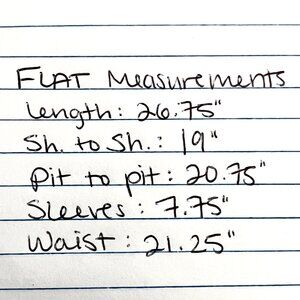 FLAT Measurements
Length: 26.75"
Sh. to Sh.: 19"
Pit to pit: 20.75"
Sleeves: 7.75"
Waist: 21.25"